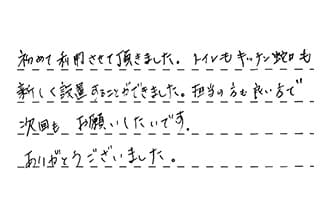 初めて利用させて頂きました。トイレもキッチン蛇口も
新しく設置することができました。担当の方も良い方で
次回も お願いしたいです。
ありがとうございました。